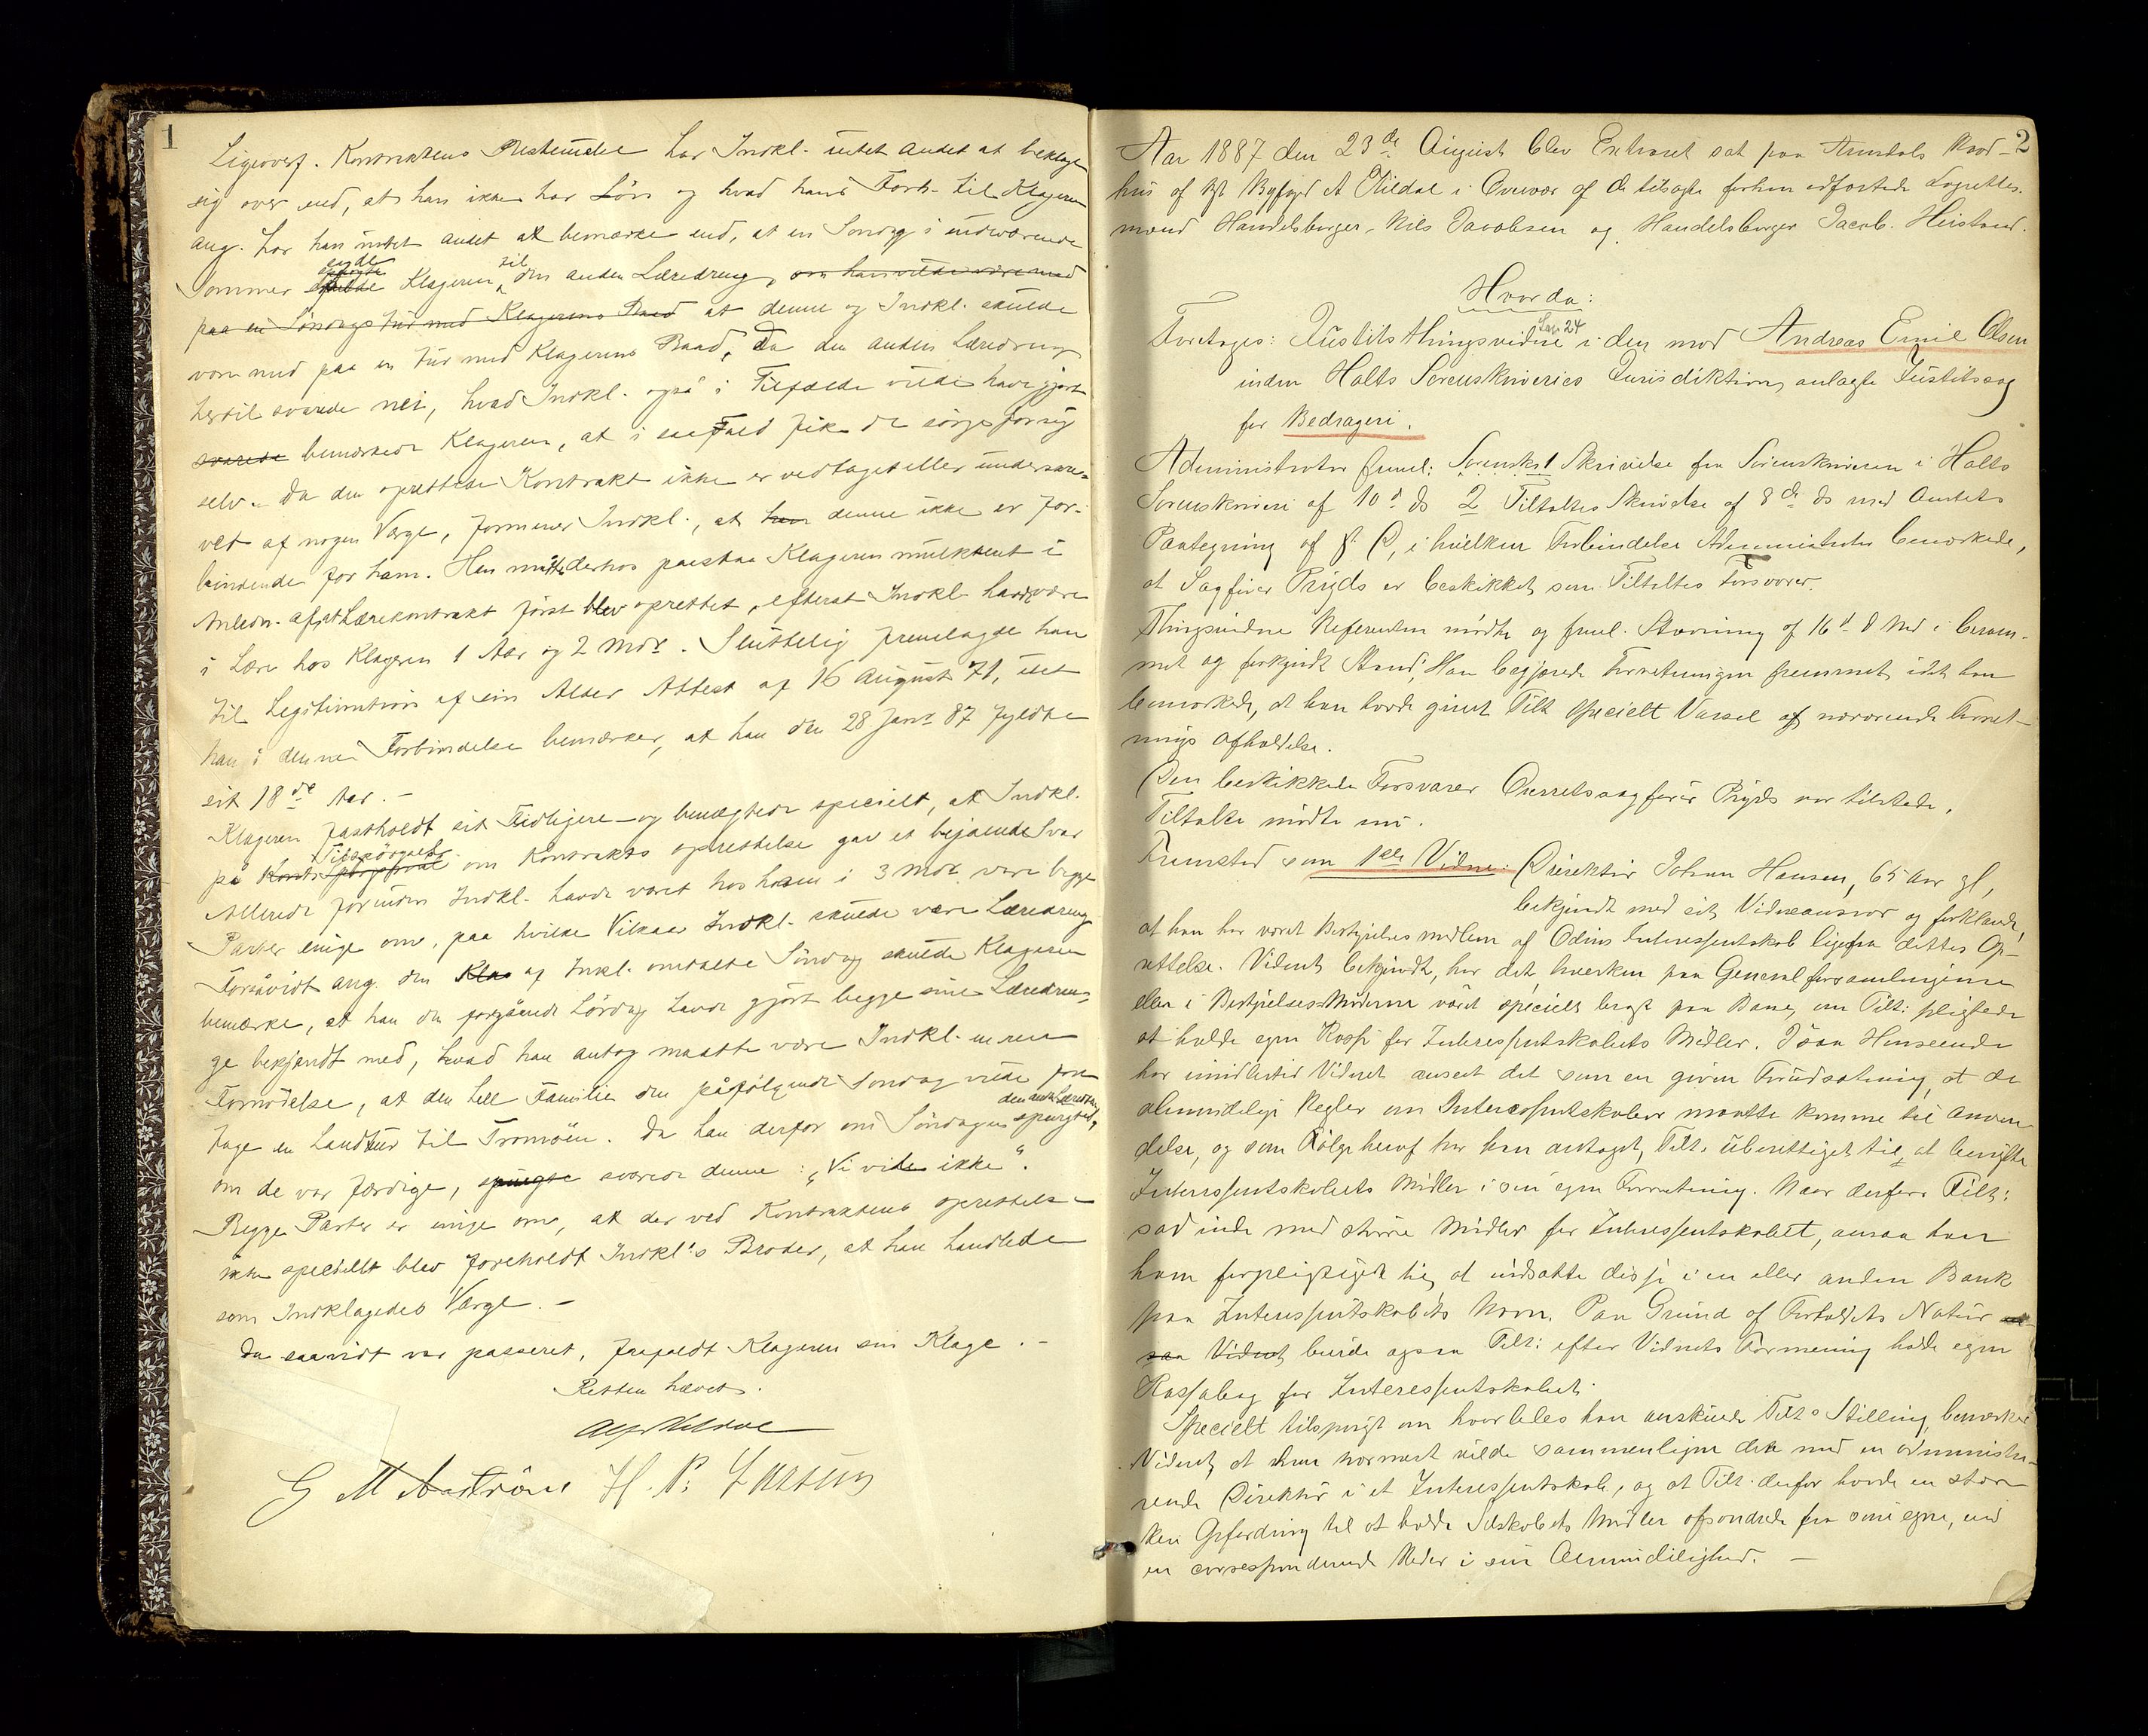 1
Ligeoverf. Kontraktens Bestemelse har Indkl. intet andet at beklage
sig over end, at han ikke har Løn og hvad hans Forh. til Klageren
ang. har han intet andet at bemærke end, at en Søndag i indeværende
Sommer spurgte Klageren til den anden Læredreng, om han vilde være med
paa en Søndagstur med Klagerens Baad at denne og Indkl. skulde
være med paa en Tur med Klagerens Baad, Da den anden Læredreng
hertil svarede nei, hvad Indkl. også i Tilfælde vilde have gjort
svarede bemærkede Klageren, at i saa Fald fik de sørge for sig
selv. Da den oprettede Kontrakt ikke er vedtaget eller underskre-
vet af nogen Værge, formener Indkl., at han denne ikke er for-
bindende for ham. Han måtte derhos paastaa Klageren mulkteret i
Anledn. af at Lærekontrakt først blev oprettet, efterat Indkl. havde være
i Lære hos Klageren 1 Aar og 2 Mdr. Sluttelig fremlagde han
til Legitimation af sin Alder Attest af 16 August 71, idet
han i denne Forbindelse bemærker, at han den 28 Janr 87 fyldte
sit 18de Aar. -
Klageren fastholdt sit Tidligere og benægtede specielt, at Indkl.
på Tilspørgsel om Kontrakts oprettelse gav et bejaende Svar
Allerede forinden Indkl. havde været hos ham i 3 Mdr. vare begge
Parter enige om, paa hvilke Vilkaar Indkl. skulde være Læredreng
Forsåvidt ang. den Klag af Inkl. omtalte Søndag skulde Klageren
bemærke, at han den foregående Lørdag havde gjort begge sine Læredren-
ge bekjendt med, hvad han antog maatte være Indkl. en ren
Fornøielse, at den hele Familie den påfølgende Søndag vilde fore-
tage en Landtur til Tromøen. Da han derfor om Søndagen spurgte den anden Læredreng,
om de var færdige, spurgte svarede denne: „Vi vil ikke“.
Begge Parter er enige om, at der ved Kontraktens oprettelse
ikke specielt blev foreholdt Indkl's Broder, at han handlede
som Indklagedes Værge. -
Da saavidt var passeret, frafaldt Klageren sin Klage. -
Retten hævet.
G M
H. P.
2
Aar 1887 den 23de August blev Extraret sat paa Arendals Raad-
hus af kst Byfoged A Mildal i Overvær af de tilsagte forhen edfæstede Lagrettes-
mænd Handelsborger Nils Jacobsen og Handelsborger Jacob Heistand.
Hvorda:
Foretoges: Justits thingsvidne i den mod Andreas Emil Olsen
inden Holts Sorenskriveries Jurisdiktion anlagte Justitssag
for Bedrageri.
Administrator freml: 1 Skrivelse fra Sorenskriveren i Holts
Sorenskriveri af 10d ds 2 Tiltaltes Skrivelse af 8de ds med Amtets
Paategning af s. D, i hvilken Forbindelse Administrator bemærkede,
at Sagfører Prydz er beskikket som Tiltaltes Forsvarer.
Thingsvidne Referenten mødte og freml. Stævning af 16d d Md i beram-
met og forkyndt Stand. Han begjærede Forretningen fremmet, idet han
bemærkede, at han havde givet Tilt specielt Varsel af nærværende Forret-
nings Afholdelse.
Den beskikkede Forsvarer Overretssagfører Prydz var tilstede,
Tiltalte mødte ei.
Fremstod som 1ste Vidne: Direktør Johan Hansen, 65 Aar gl,
bekjendt med sit Vidneansvar og forklarede,
at han har været Bestyrelsesmedlem af Odins Interessentskab ligefra dettes Op-
rettelse. Vidnet bekjendt, har det hverken paa Generalforsamlingerne
eller i Bestyrelses-Møderne været specielt bragt paa Bane, om Tilt: pligtede
at holde egen Kasse for Interessentskabets Midler. I saa Henseende
har imidlertid Vidnet anseet det som en given Forudsætning, at de
almindelige Regler om Interessentskaber maatte komme til Anven-
delse, og som Følge heraf har han antaget, Tilt. uberettiget til at benytte
Interessentskabets Midler i sin egen Forretning. Naar derfor Tilt:
sad inde med større Midler for Interessentskabet, ansaa han
ham forpligtiget til at indsætte disse i en eller anden Bank
paa Interessentskabets Navn. Paa Grund af Forholdets Natur
saa Vidnet burde ogsaa Tilt: efter Vidnets Formening holde egen
Kassabog for Interessentskabet.
Specielt tilspurgt om hvorledes han anskuede Tilts Stilling, bemærker
Vidnet, at han nærmest vilde sammenligne den med en administre-
rende Direktør i et Interessentskab, og at Tilt. derfor havde en stær-
kere Opfordring til at holde Selskabets Midler afsondrede fra sine egne, end
en corresponderende Reder i sin Almindelighed. -